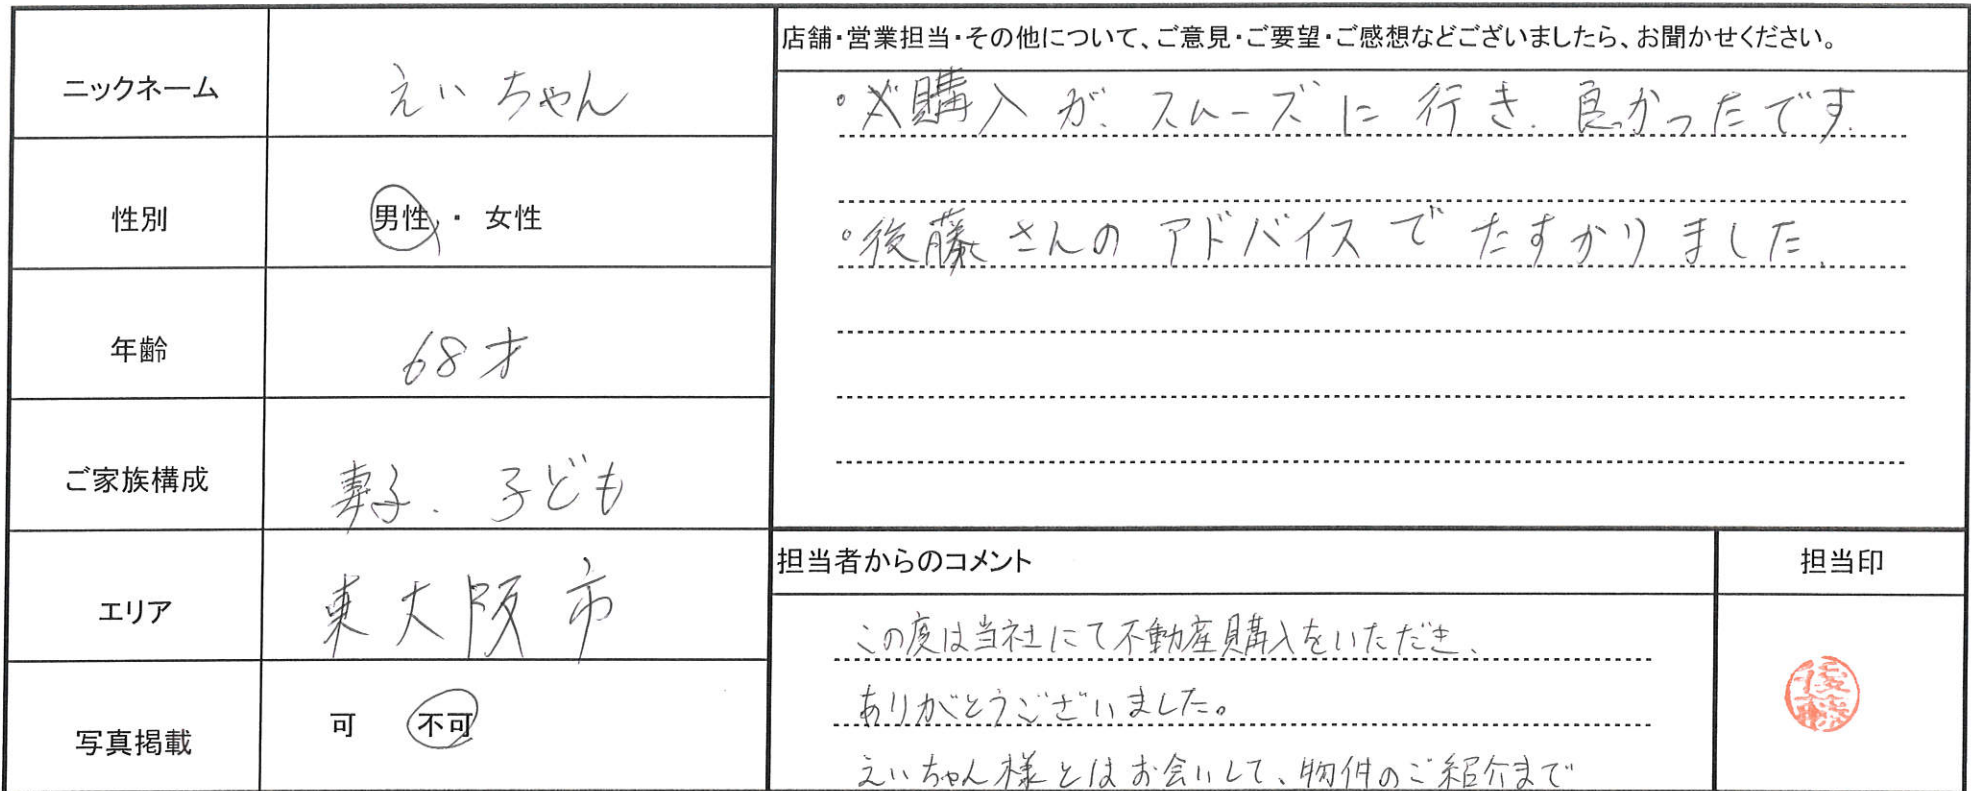 ニックネーム
えいちゃん
性別
男性 ・ 女性
年齢
68才
ご家族構成
妻子. 子ども
エリア
東大阪市
写真掲載
可 不可
店舗・営業担当・その他について、ご意見・ご要望・ご感想などございましたら、お聞かせください。
・購入が、スムーズに行き、良かったです.
・後藤さんのアドバイスでたすかりました.
担当者からのコメント
この度は当社にて不動産購入をいただき、
ありがとうございました。
えいちゃん様とはお会いして、物件のご紹介まで
担当印
後藤